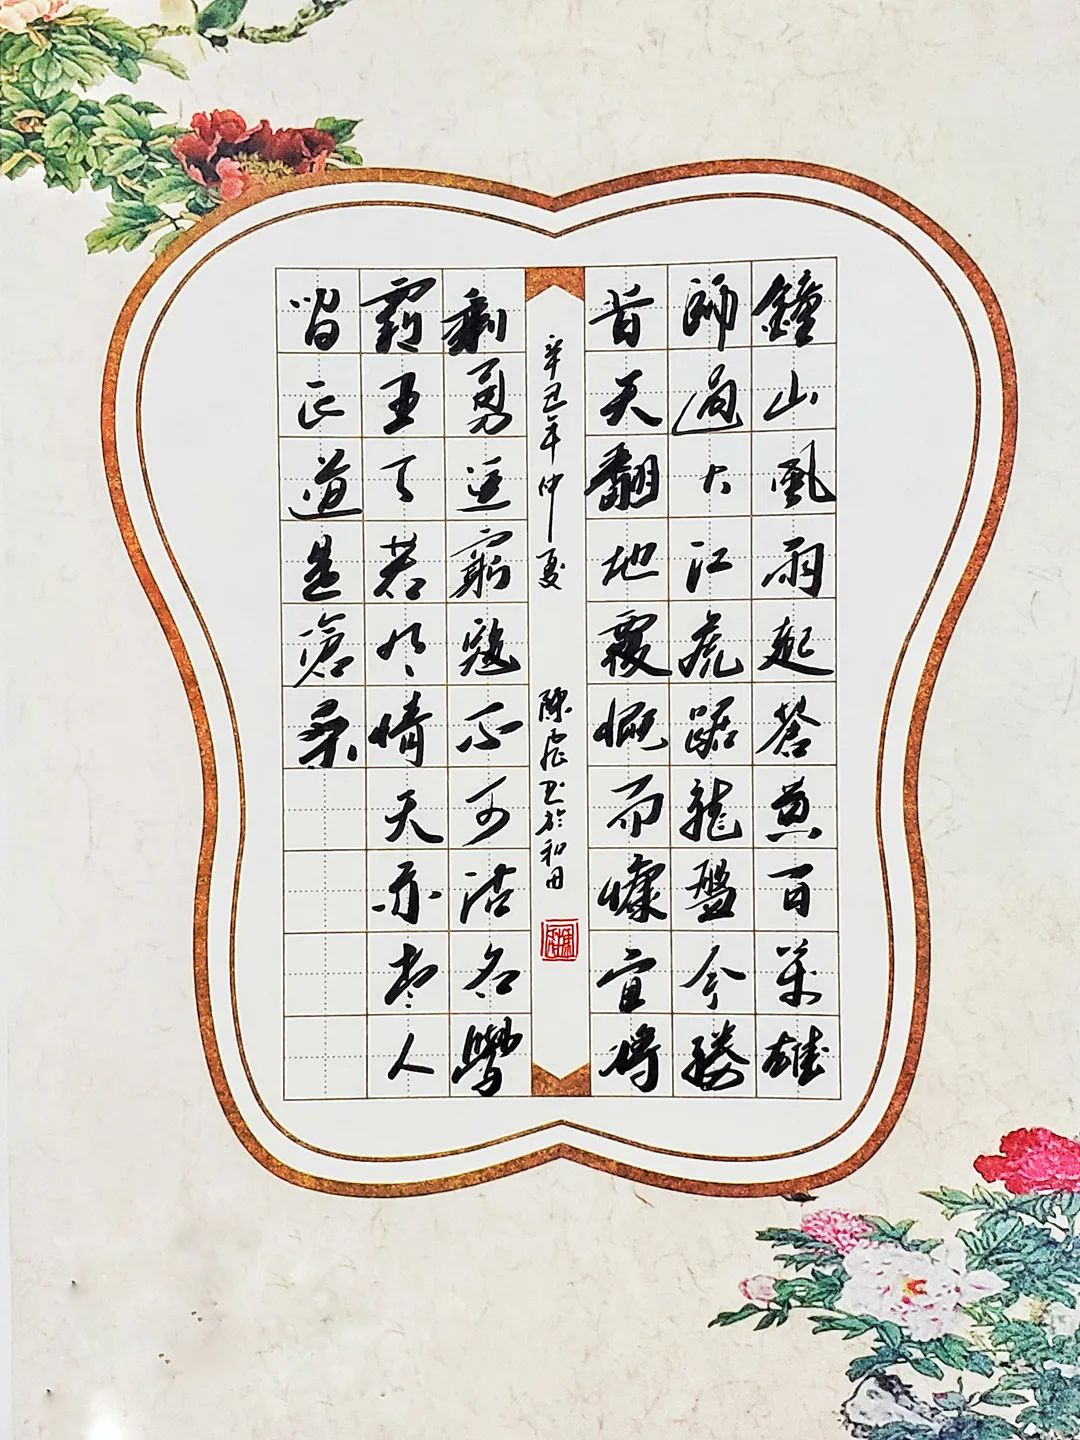 鐘山風雨起蒼黃百萬雄
師過大江虎踞龍盤今勝
昔天翻地覆慨而慷宜將
剩勇追窮寇不可沽名學
霸王天若有情天亦老人
間正道是滄桑
辛丑年仲夏
陳书於和田